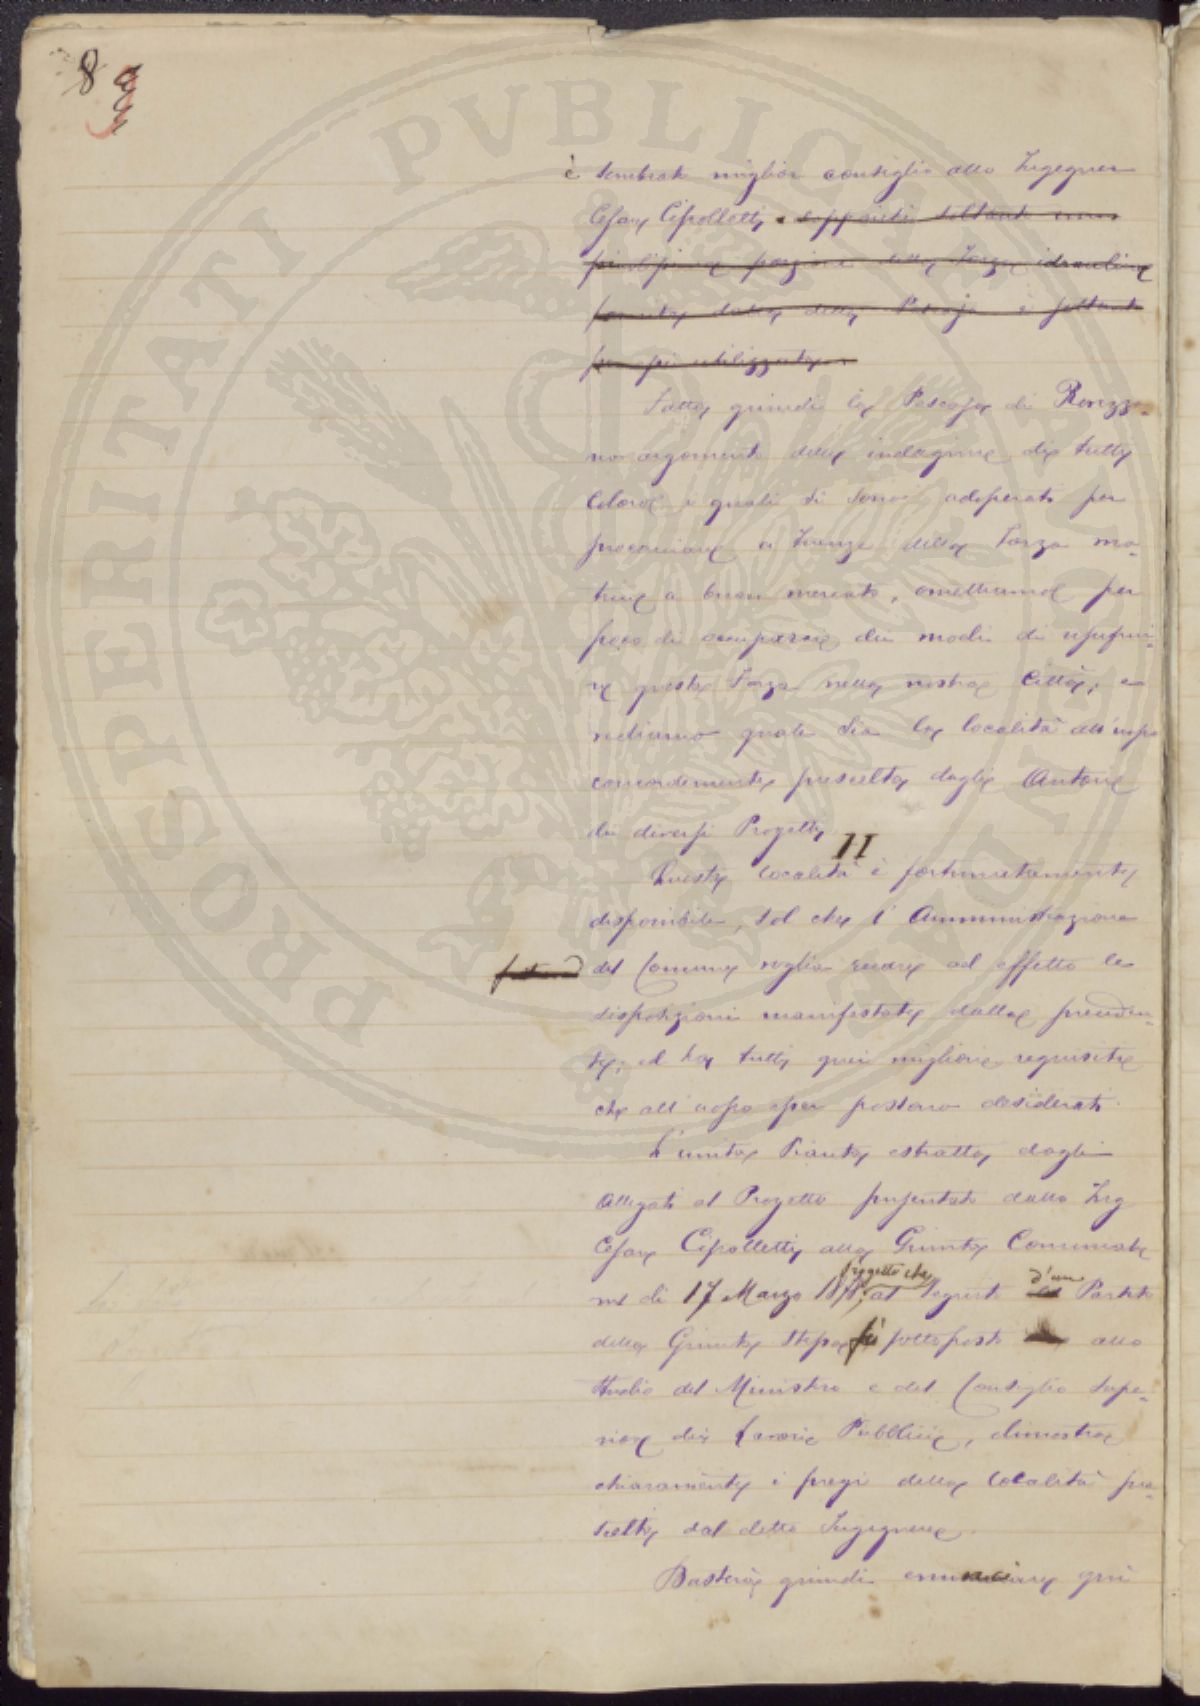 8
è sembrato miglior consiglio allo Ingegner
Cesare Cipolletti
Fatta quindi la Pescaja di Rovezza-
no argomento delle indagini di tutti
Coloro i quali si sono adoperati per
procacciare a Firenze della Forza mo-
trice a buon mercato, omettiamo per
poco di occuparci dei modi di usufrui-
re questa Forza nella nostra Città, e
vediamo quale sia la località all'uopo
concordemente prescelta dagli Autori
dei diversi Progetti
II
Questa località è fortunatamente
disponibile, sol che l'Amministrazione
del Comune voglia recare ad effetto le
disposizioni manifestate dalla preceden-
te; ed ha tutti quei migliori requisiti
che all'uopo possano desiderarsi.
L'unita Pianta estratta dagli
Allegati al Progetto presentato dallo Ing
Cesare Cipolletti alla Giunta Comunale
progetto che d'un
nel dì 17 Marzo al seguito Partito
della Giunta stessa fù sottoposto allo
studio del Ministro e del Consiglio Supe-
riore dei Lavori Pubblici, dimostra
chiaramente i pregi della località pre-
scelta dal detto Ingegnere.
Basterà quindi enunciare qui
PROSPERITATI PVBLICAE PROVIDENDAE